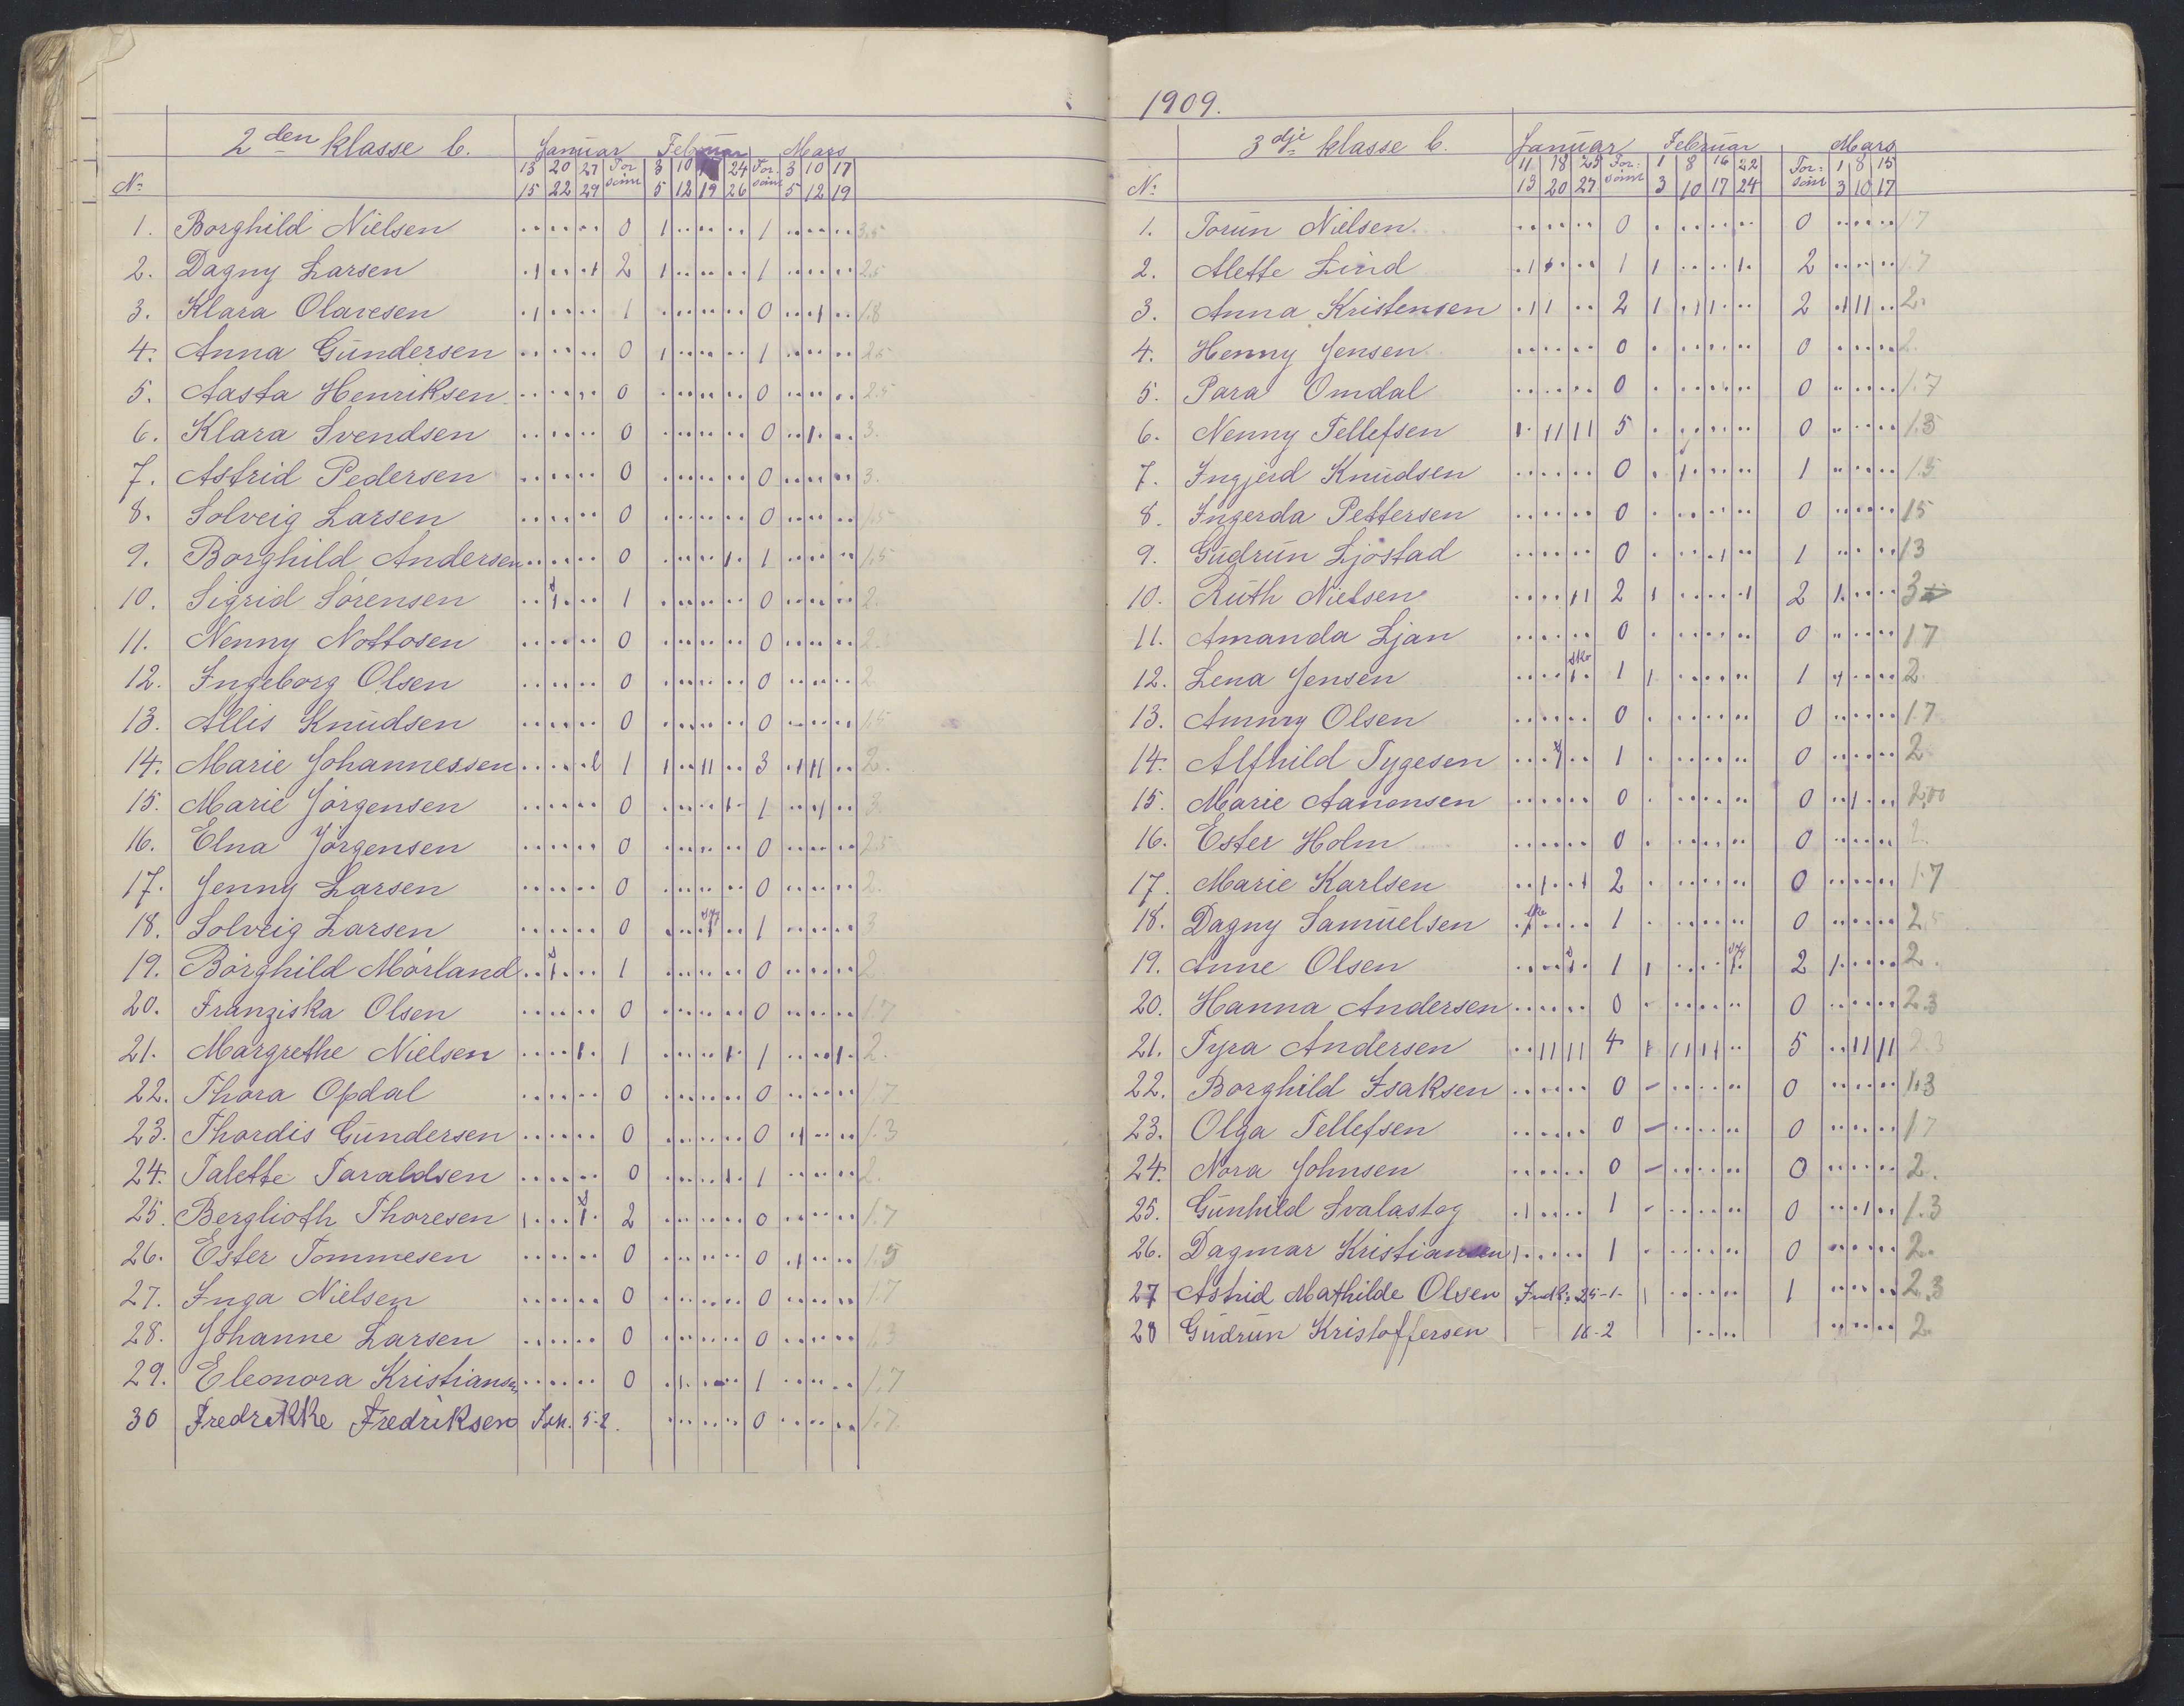 2den klasse b. Januar Februar Mars
No 13 20 27 For 3 10 24 For. 3 10 17
15 22 29 sömt 5 12 19 26 sömt 5 12 19
1. Borghild Nielsen 0 1 1 3.5
2. Dagny Larsen 2 1 1 2.5
3. Klara Olavesen 1 0 1.8
4. Anna Gundersen 0 1 1 2.5
5. Aasta Henriksen 0 0 2.5
6. Klara Svendsen 0 0 3.
7. Astrid Pedersen 0 0 3.
8. Solveig Larsen 0 0 1.5
9. Borghild Andersen 0 1 1.5
10. Sigrid Sörensen 1 0 2.
11. Nenny Nottosen 0 0 2.
12. Ingeborg Olsen 0 0 2
13. Allis Knudsen 0 0 1.5
14. Marie Johannessen 1 3 2.
15. Marie Jörgensen 0 1 3.
16. Elna Jörgensen 0 0 2.5
17. Jenny Larsen 0 0 2.
18. Solveig Larsen 0 1 3
19. Borghild Mörland 1 0 2
20. Franziska Olsen 0 0 1.7
21. Margrethe Nielsen 1 1 2.
22. Thora Opdal 0 0 1.7
23. Thordis Gundersen 0 0 1.3
24. Talette Taraldsen 0 1 2.
25. Berglioth Thoresen 2 0 1.7
26. Ester Tommesen 0 0 1.5
27. Inga Nielsen 0 0 1.7
28. Johanne Larsen 0 0 1.3
29. Eleonora Kristiansen 0 1 1.7
30 Fredrikke Fredriksen 5-2. 0 1.7.
1909.
3dje klasse b. Januar Februar Mars
No 11 18 25 For: 1 8 16 22 For: 1 8 15
13 20 27 sömt 3 10 17 24 sömt 3 10 17
1. Torun Nielsen 0 0 1.7
2. Alette Lind 1 2 1.7
3. Anna Kristensen 2 2 2.
4. Henny Jensen 0 0 2.
5. Para Omdal 0 0 1.7
6. Nenny Tellefsen 5 0 1.5
7. Ingjerd Knudsen 0 1 1.5
8. Ingerda Pettersen 0 0 15
9. Gudrun Ljöstad 0 1 13
10. Ruth Nielsen 2 2 3
11. Amanda Ljan 0 0 17
12. Lena Jensen sko 1 1 2.
13. Ammy Olsen 0 0 1.7
14. Alfhild Tygesen 1 0 2
15. Marie Aanonsen 0 0 2,00
16. Ester Holm 0 0 2.
17. Marie Karlsen 2 0 1.7
18. Dagny Samuelsen 1 0 2.5
19. Anne Olsen 1 2 2.
20. Hanna Andersen 0 0 2.3
21. Tyra Andersen 4 5 2.3
22. Borghild Isaksen 0 0 1.3
23. Olga Tellefsen 0 0 17
24. Nora Johnsen 0 0 2.
25. Gunhild Svalastog 1 0 1.3
26. Dagmar Kristiansen 1 0 2.
27 Astrid Mathilde Olsen Indk. 25-1- 1 2.3
28 Gudrun Kristoffersen - 18-2 2.